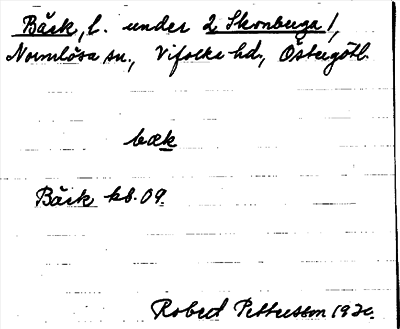 Bäck, l. under 2 Skonberga /,
Normlösa sn., Vifolke hd., Östergötl.
bæk
Bäck kb. 09.
Robert Pettersson 192